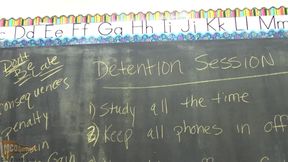 c Dd Ee Ff Gg Hh Ii Jj Kk Ll Mm
Don't
Be Late
Consequences
Penalty
Gain
Detention Session
1) Study all the time
2) Keep all phones in off